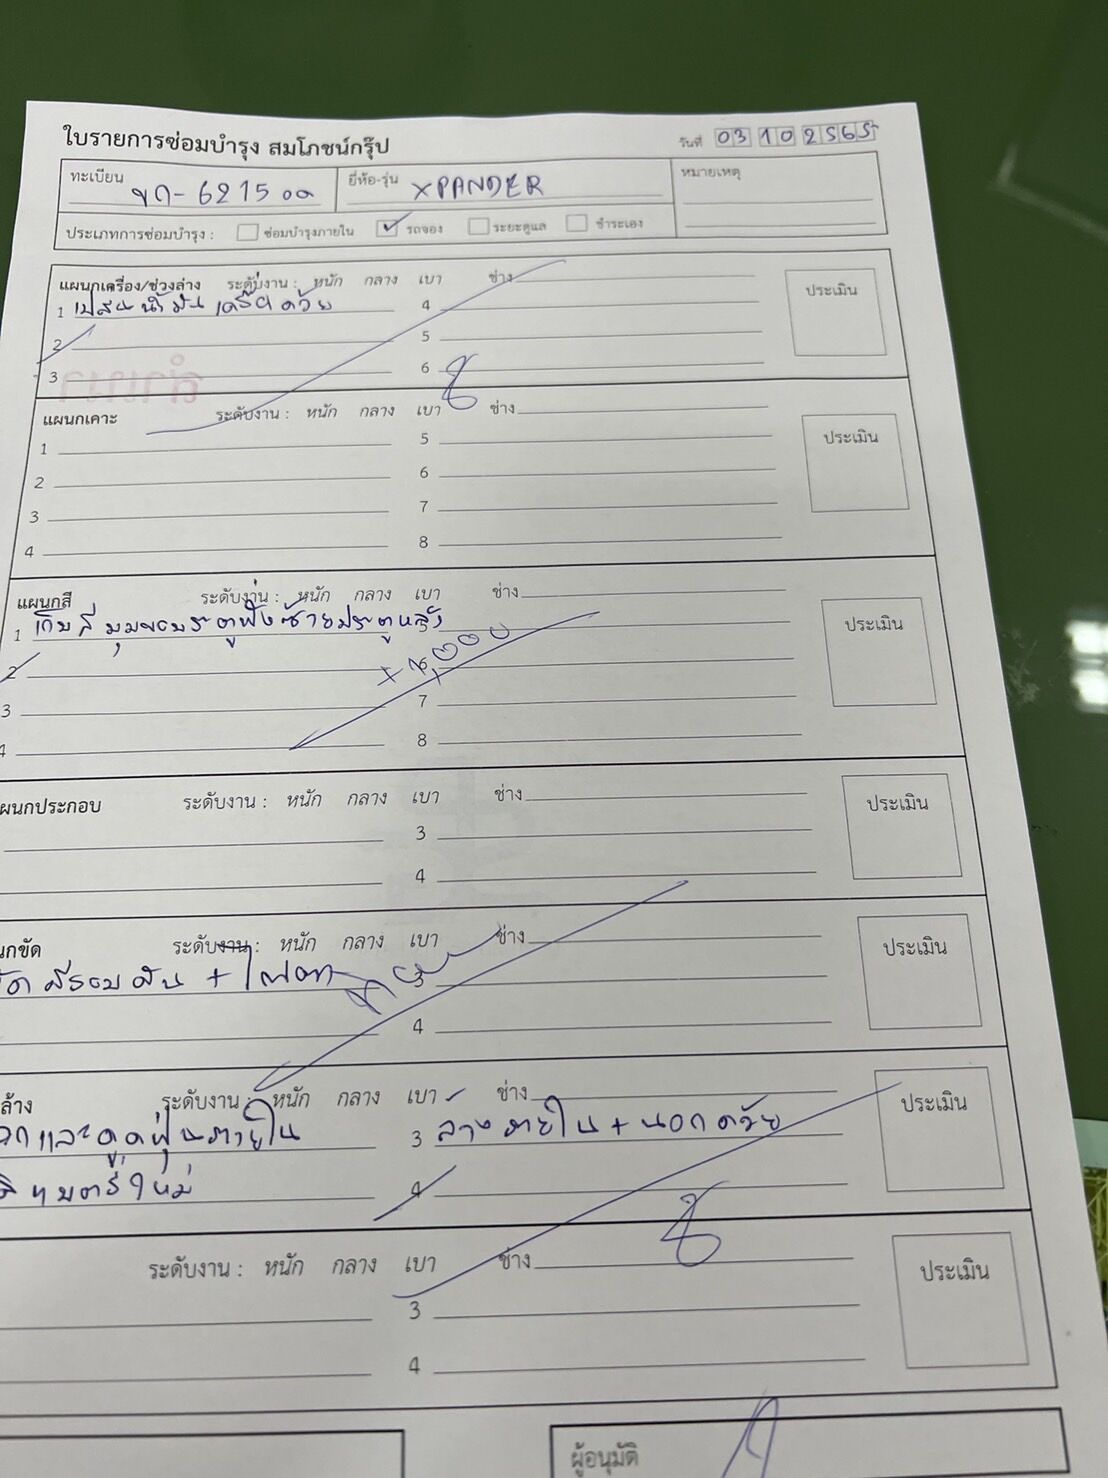 ใบรายการซ่อมบำรุง สมโภชน์กรุ๊ป
วันที่ 03 10 2565
ทะเบียน ขก-6215 ยี่ห้อ-รุ่น XPANDER หมายเหตุ
ประเภทการซ่อมบำรุง : ซ่อมบำรุงภายใน รถจอง ระยะดูแล ชำระเอง
แผนกเครื่อง/ช่วงล่าง ระดับงาน : หนัก กลาง เบา ช่าง ประเมิน
1 เปลี่ยนน้ำมันเครื่องด้วย 4
2 5
3 6
สำเนา
แผนกเคาะ ระดับงาน : หนัก กลาง เบา ช่าง ประเมิน
1 5
2 6
3 7
4 8
แผนกสี ระดับงาน : หนัก กลาง เบา ช่าง ประเมิน
1 เก็บสีมุมขอบประตูฝั่งซ้ายประตูหลัง 5
2 6
3 7
4 8
ผนกประกอบ ระดับงาน : หนัก กลาง เบา ช่าง ประเมิน
3
4
นกขัด ระดับงาน : หนัก กลาง เบา ช่าง ประเมิน
ขัดสีรอบคัน + 3
4
ล้าง ระดับงาน : หนัก กลาง เบา ช่าง ประเมิน
และดูดฝุ่นภายใน 3 ล้างภายใน + นอกด้วย
4
ระดับงาน : หนัก กลาง เบา ช่าง ประเมิน
3
4
ผู้อนุมัติ